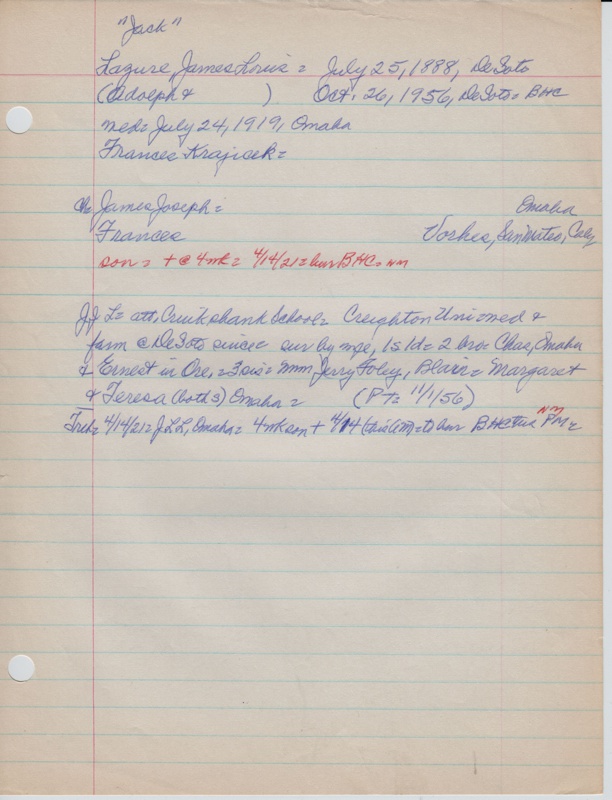 "Jack"
Lazure, James Louis = July 25, 1888, DeSoto
(Adolph & ) Oct. 26, 1956, DeSoto = BHC
med = July 24, 1919, Omaha
Frances Krajicek =
Ch = James Joseph = Omaha
Frances Vorhes, San Mateo, Calif
son = + @ 4 mk = 4/14/21 = bur BHC = NM
JL = att. Cruikshank School = Creighton Uni = med &
farm @ DeSoto since = sur by wfe, 1s 1d = 2 bro = Chas, Omaha
& Ernest in Ore, = 3 sis = Mrs Jerry Foley, Blair = Margaret
& Teresa (both s) Omaha = (PT = 11/1/56)
Trib = 4/14/21 = JLL, Omaha = 4 mk son + 4/14 = to bur BHC PM = NM